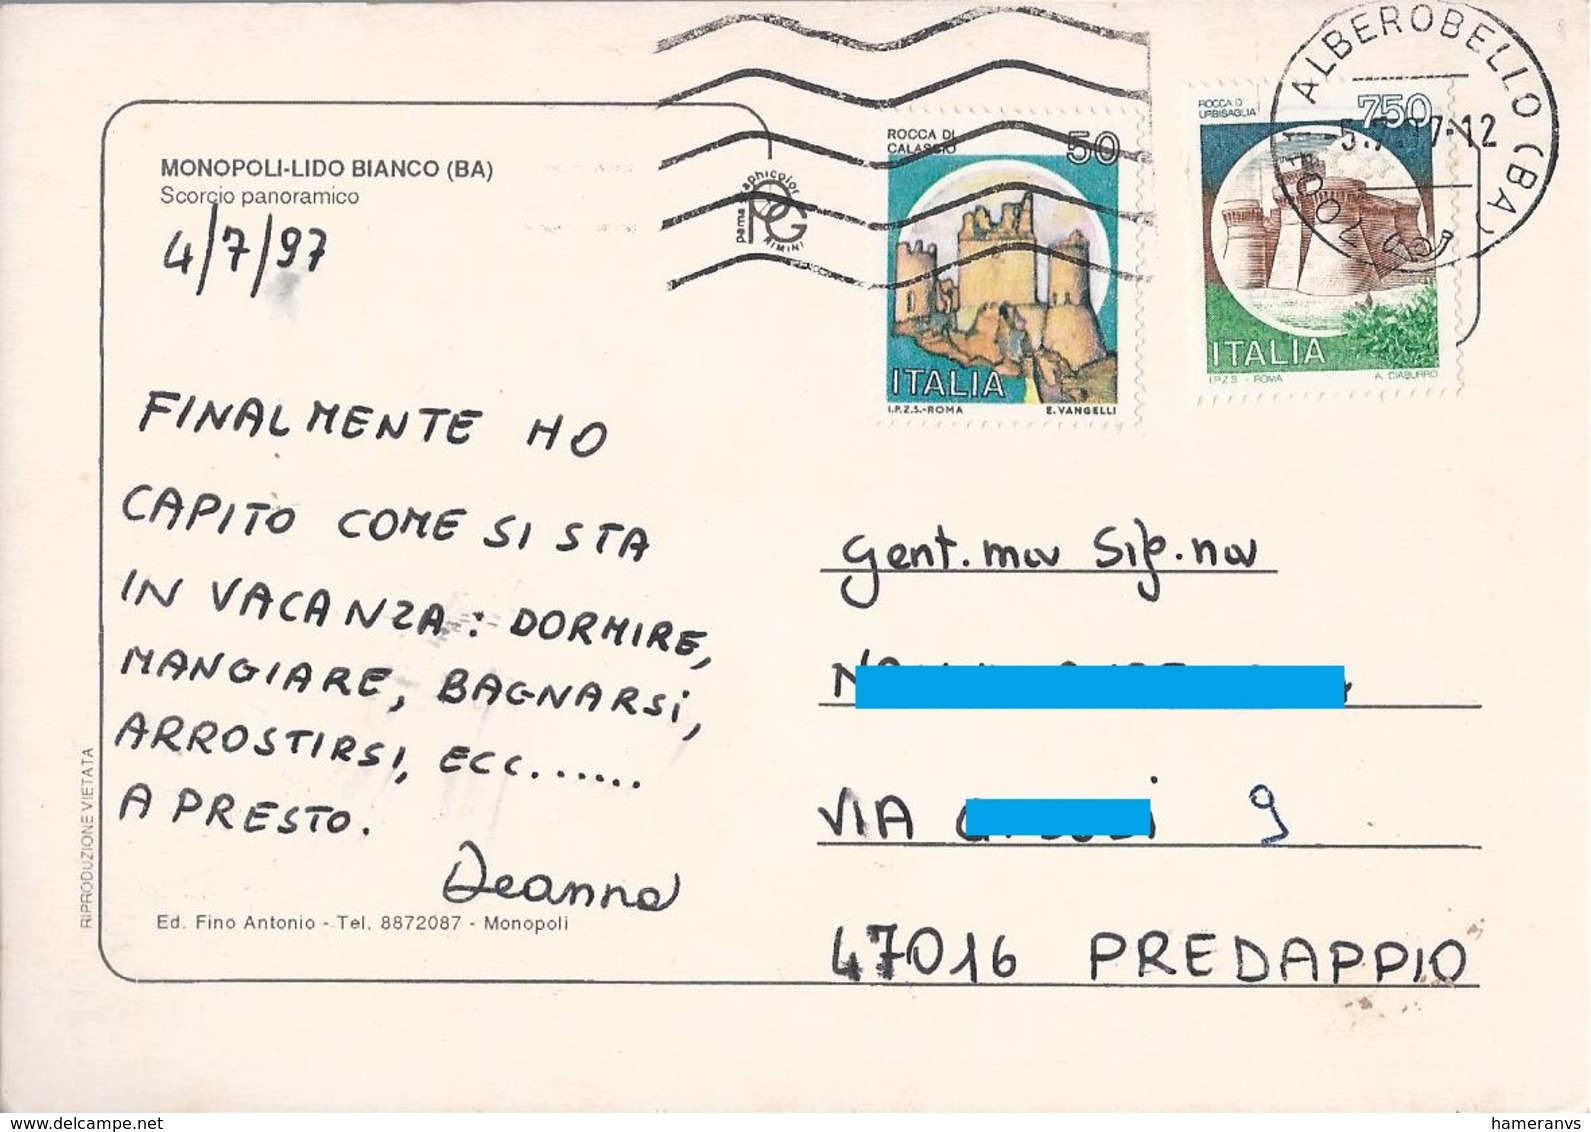 MONOPOLI-LIDO BIANCO (BA)
Scorcio panoramico
4/7/97
pama graphicolor
RIMINI
FINALMENTE HO
CAPITO COME SI STA
IN VACANZA: DORMIRE,
MANGIARE, BAGNARSI,
ARROSTIRSI, ECC......
A PRESTO.
Deanna
Ed. Fino Antonio - Tel. 8872087 - Monopoli
RIPRODUZIONE VIETATA
ROCCA DI
CALASCIO
50
ITALIA
I.P.Z.S.-ROMA E. VANGELLI
ROCCA DI
URBISAGLIA
750
ITALIA
I.P.Z.S - ROMA A. CIABURRO
ALBEROBELLO (BA)
-5.7. 97-12
Gent.ma Sig.na
VIA 9
47016 PREDAPPIO
hameranvs